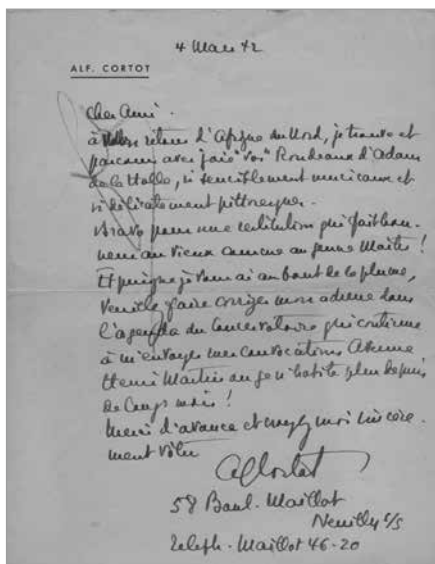 4 Mars 42
ALF. CORTOT
Cher Ami.
à mon retour d'Afrique du Nord, je trouve et
parcours avec joie vos Rondeaux d'Adam
de la Halle, si sensiblement musicaux et
si délicatement pittoresques.
Bravo pour une restitution qui fait hon-
neur au vieux comme au jeune Maître !
Et puisque je vous ai au bout de la plume,
veuillez faire corriger mon adresse dans
l'agenda du Conservatoire qui continue
à m'envoyer mes convocations Avenue
Henri Martin que je n'habite plus depuis
de longs mois !
Merci d'avance et croyez moi sincère-
ment vôtre
A Cortot
58 Boul. Maillot
Neuilly s/s
Teleph. Maillot 46-20